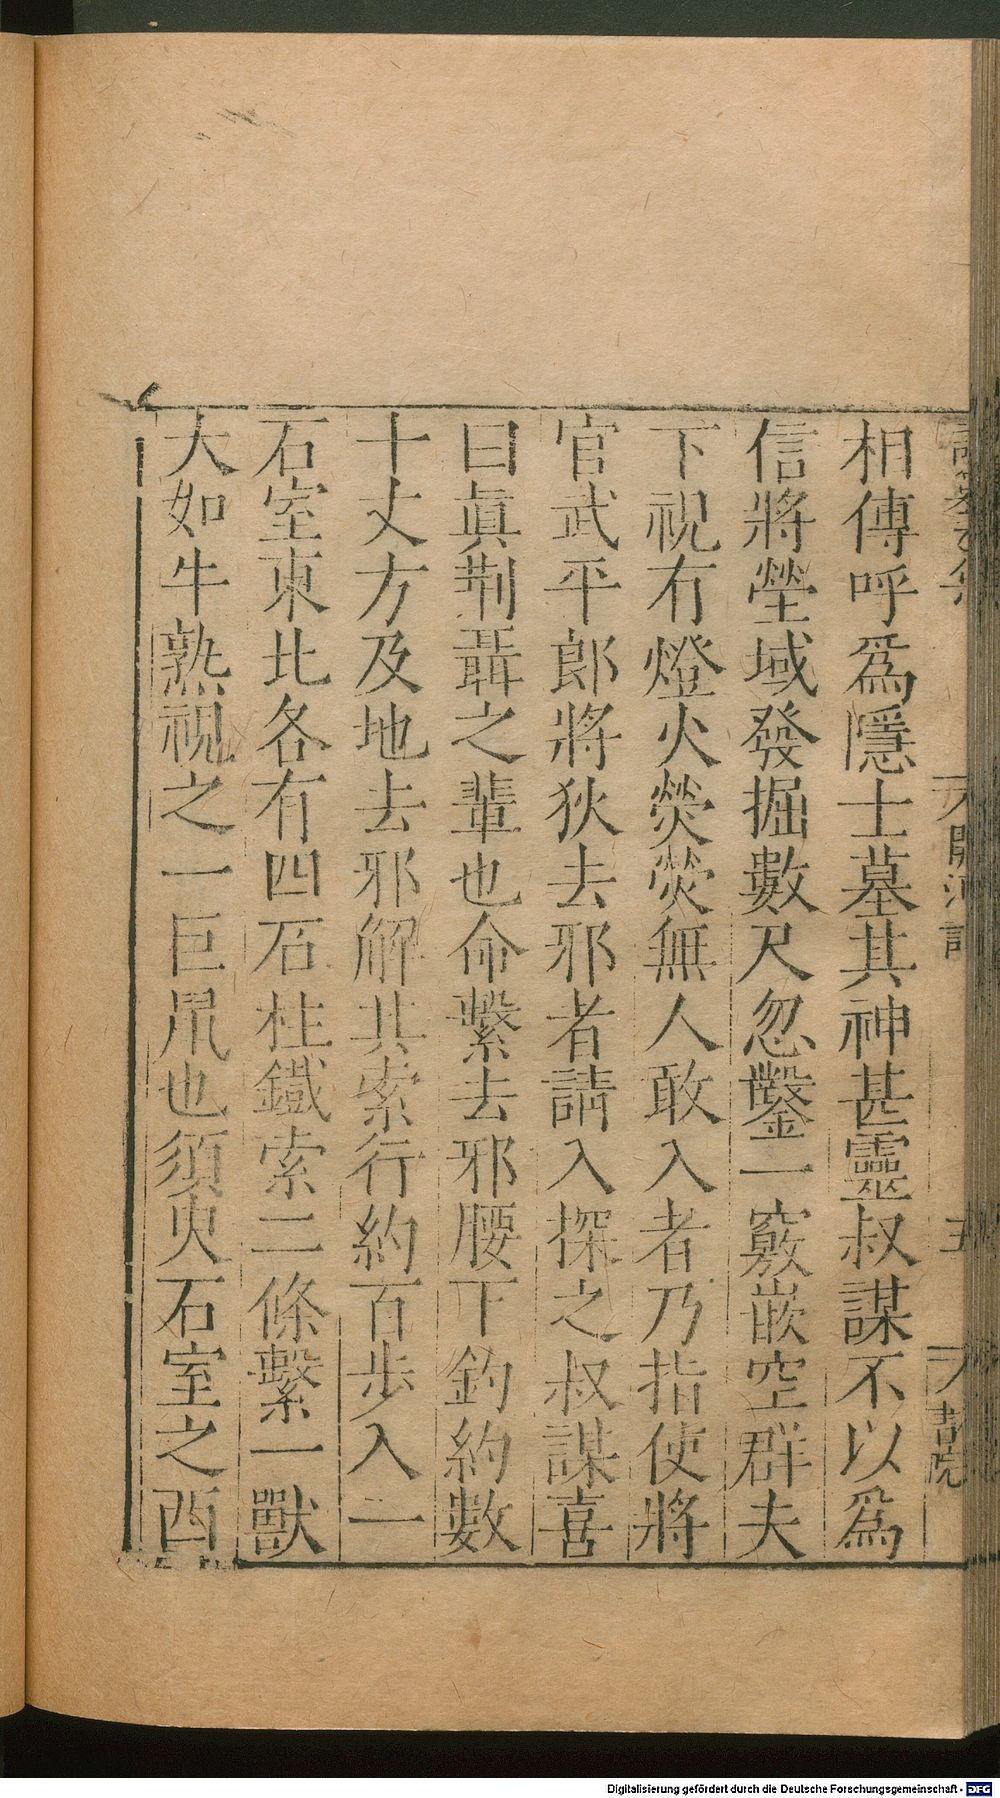 相傳呼爲隱士墓其神甚靈叔謀不以爲
信將塋域發掘數尺忽鑿一竅嵌空群夫
下視有燈火熒熒無人敢入者乃指使將
官武平郎將狄去邪者請入探之叔謀喜
曰眞荆聶之輩也命繫去邪腰下釣約數
十丈方及地去邪解其索行約百步入一
石室東北各有四石柱鐵索二條繫一獸
大如牛熟視之一巨鼠也須臾石室之酉
開河記
五
書院
Digitalisierung gefördert durch die Deutsche Forschungsgemeinschaft - DFG